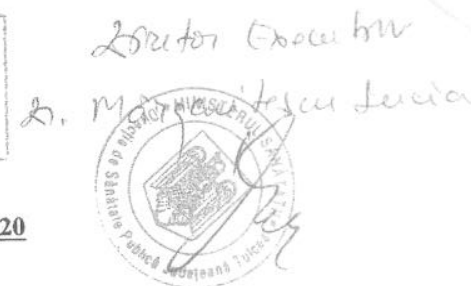 Director Executiv
Dr. Mărgăritescu Lucia
MINISTERUL SĂNĂTĂȚII
Direcția de Sănătate Publică Județeană Tulcea
20